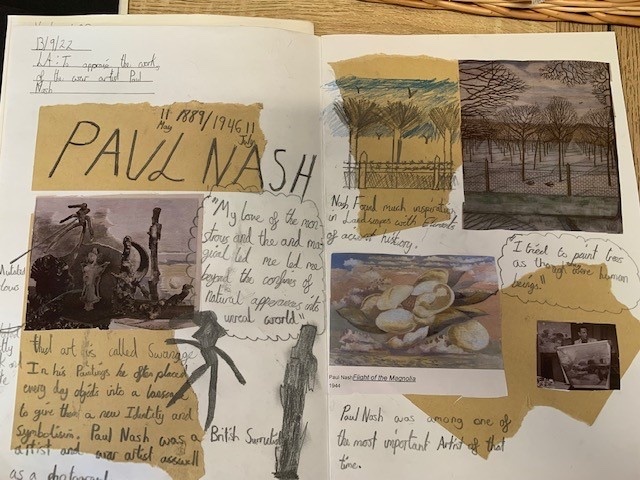 13/9/22
LA: To appraise the work
of the war artist Paul
Nash
11 May 1889/1946 11 July
PAUL NASH
"My love of the mon
strous and the and mag
ical led me led me
beyond the confines of
natural appearances into
unreal world"
this art is called Swanage
In his Paintings he often placed
every day objects into a
to give them a new Identity and
symbolism. Paul Nash was a
artist and war artist aswell
as a photograph
British Surrealist
Nash Found much inspiration
in Landscapes with elements
of acient history.
"I tried to paint trees
as though they were human
beings"
Paul Nash Flight of the Magnolia
1944
Paul Nash was among one of
the most important Artist of that
time.